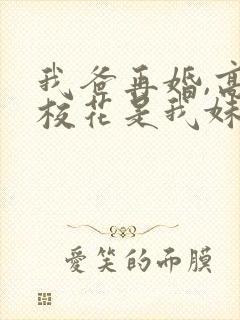 我爸再婚,高
校花是我妹
愛笑的而膜